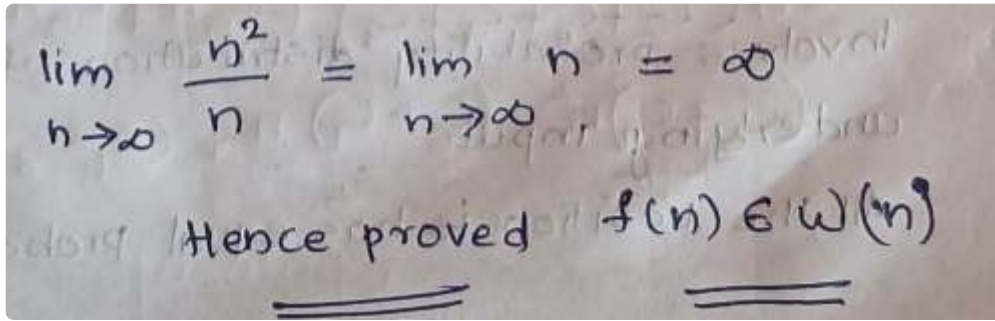 lim n² / n = lim n = ∞
n→∞ n→∞
Hence proved f(n) ∈ ω(n)